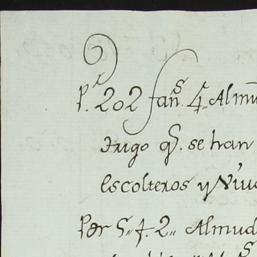 P.r 202 fan.s 4 Almu
trigo q.e se han
Escolteros y Viu
Por S. f. 2,, Almud